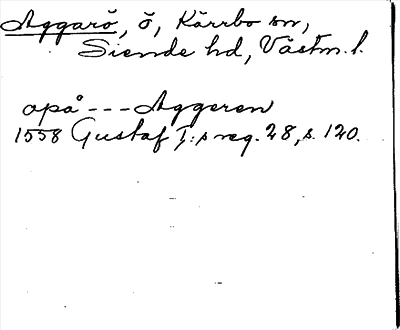 Aggarö, ö, Kärrbo sn,
Siende hd, Västm. l.
opå --- Aggeren
1558 Gustaf I:s reg. 28, s. 120.